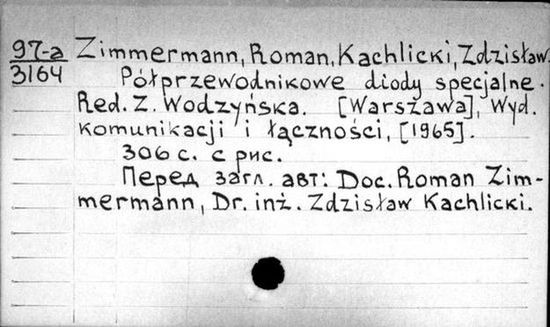 97-a
3164
Zimmermann, Roman, Kachlicki, Zdzisław.
Półprzewodnikowe diody specjalne.
Red. Z. Wodzyńska. [Warszawa], Wyd.
komunikacji i łączności, [1965].
306 с. с рис.
Перед загл. авт: Doc. Roman Zim-
mermann, Dr. inż. Zdzisław Kachlicki.